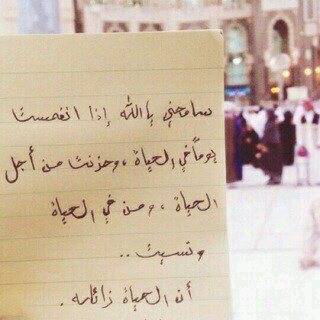 سامحني ياالله إذا انغمست
يوماً في الحياة ، وحزنت من أجل
الحياة ، ومن في الحياة
ونسيت ..
أن الحياة زائله .